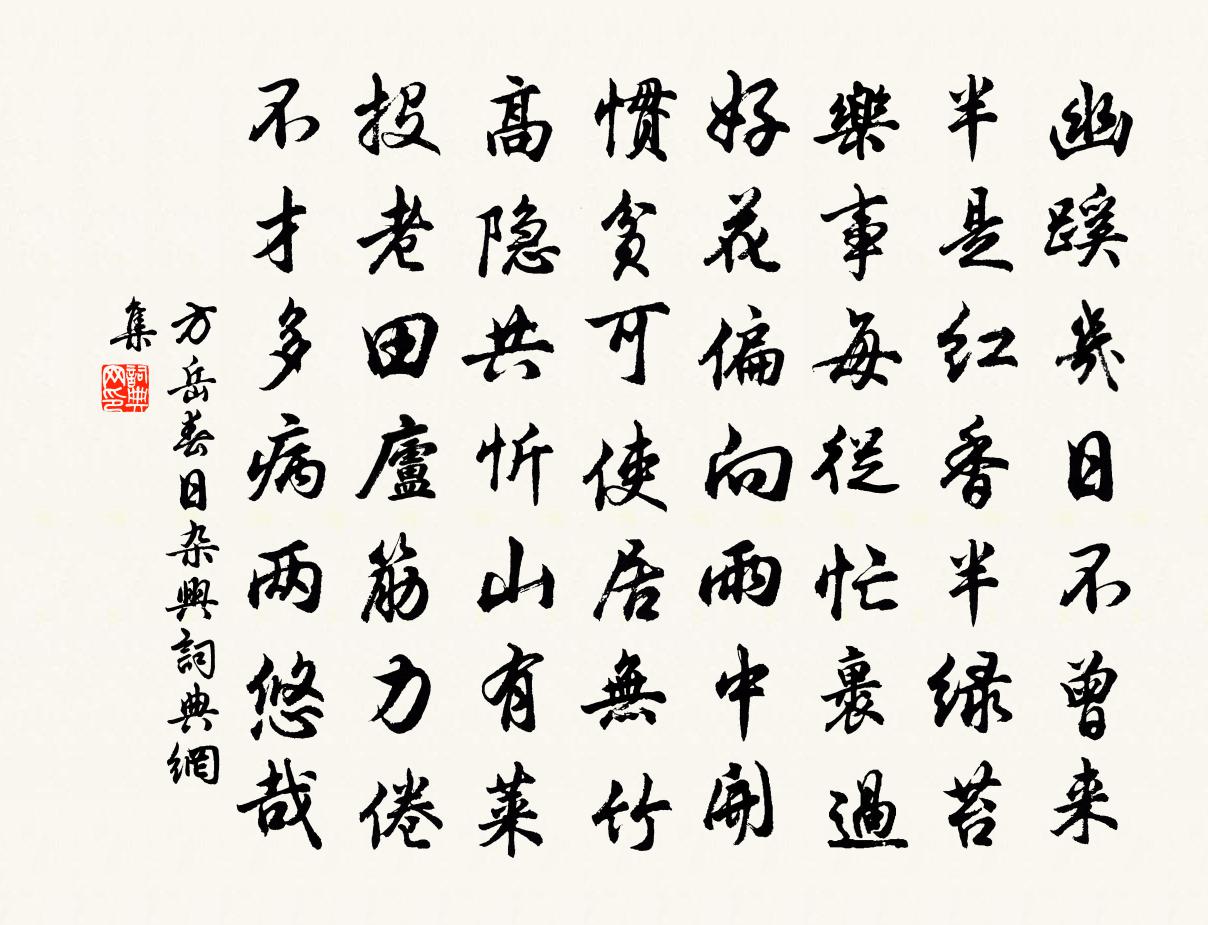 幽蹊幾日不曾来
半是红香半緑苔
樂事每從忙裏過
好花偏向雨中開
慣貧可使居無竹
高隐共忻山有莱
投老田廬筋力倦
不才多病两悠哉
方岳春日杂興詞典網
集
詞典网印